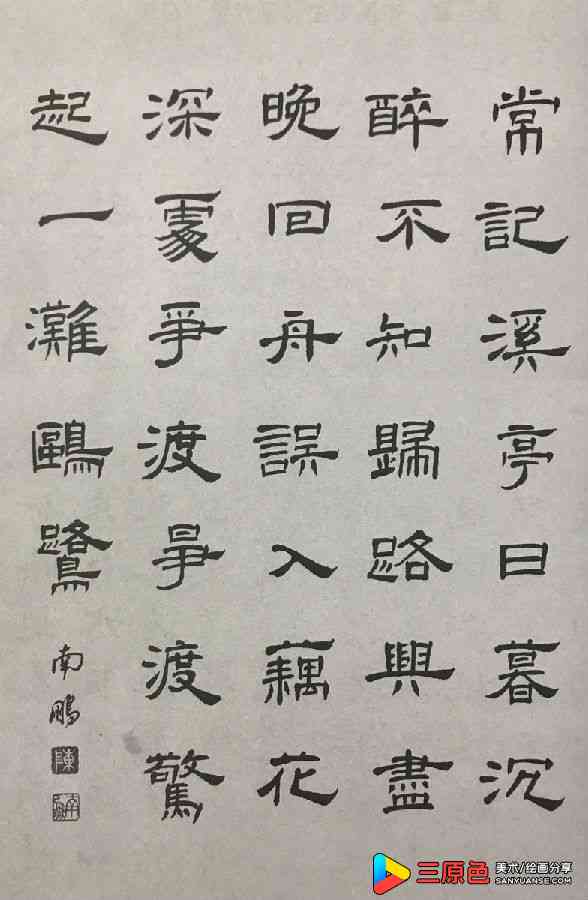 常記溪亭日暮沉
醉不知歸路興盡
晚回舟誤入藕花
深處爭渡爭渡驚
起一灘鷗鷺
南鵬
三原色
美术/绘画分享
SANYUANSE.COM